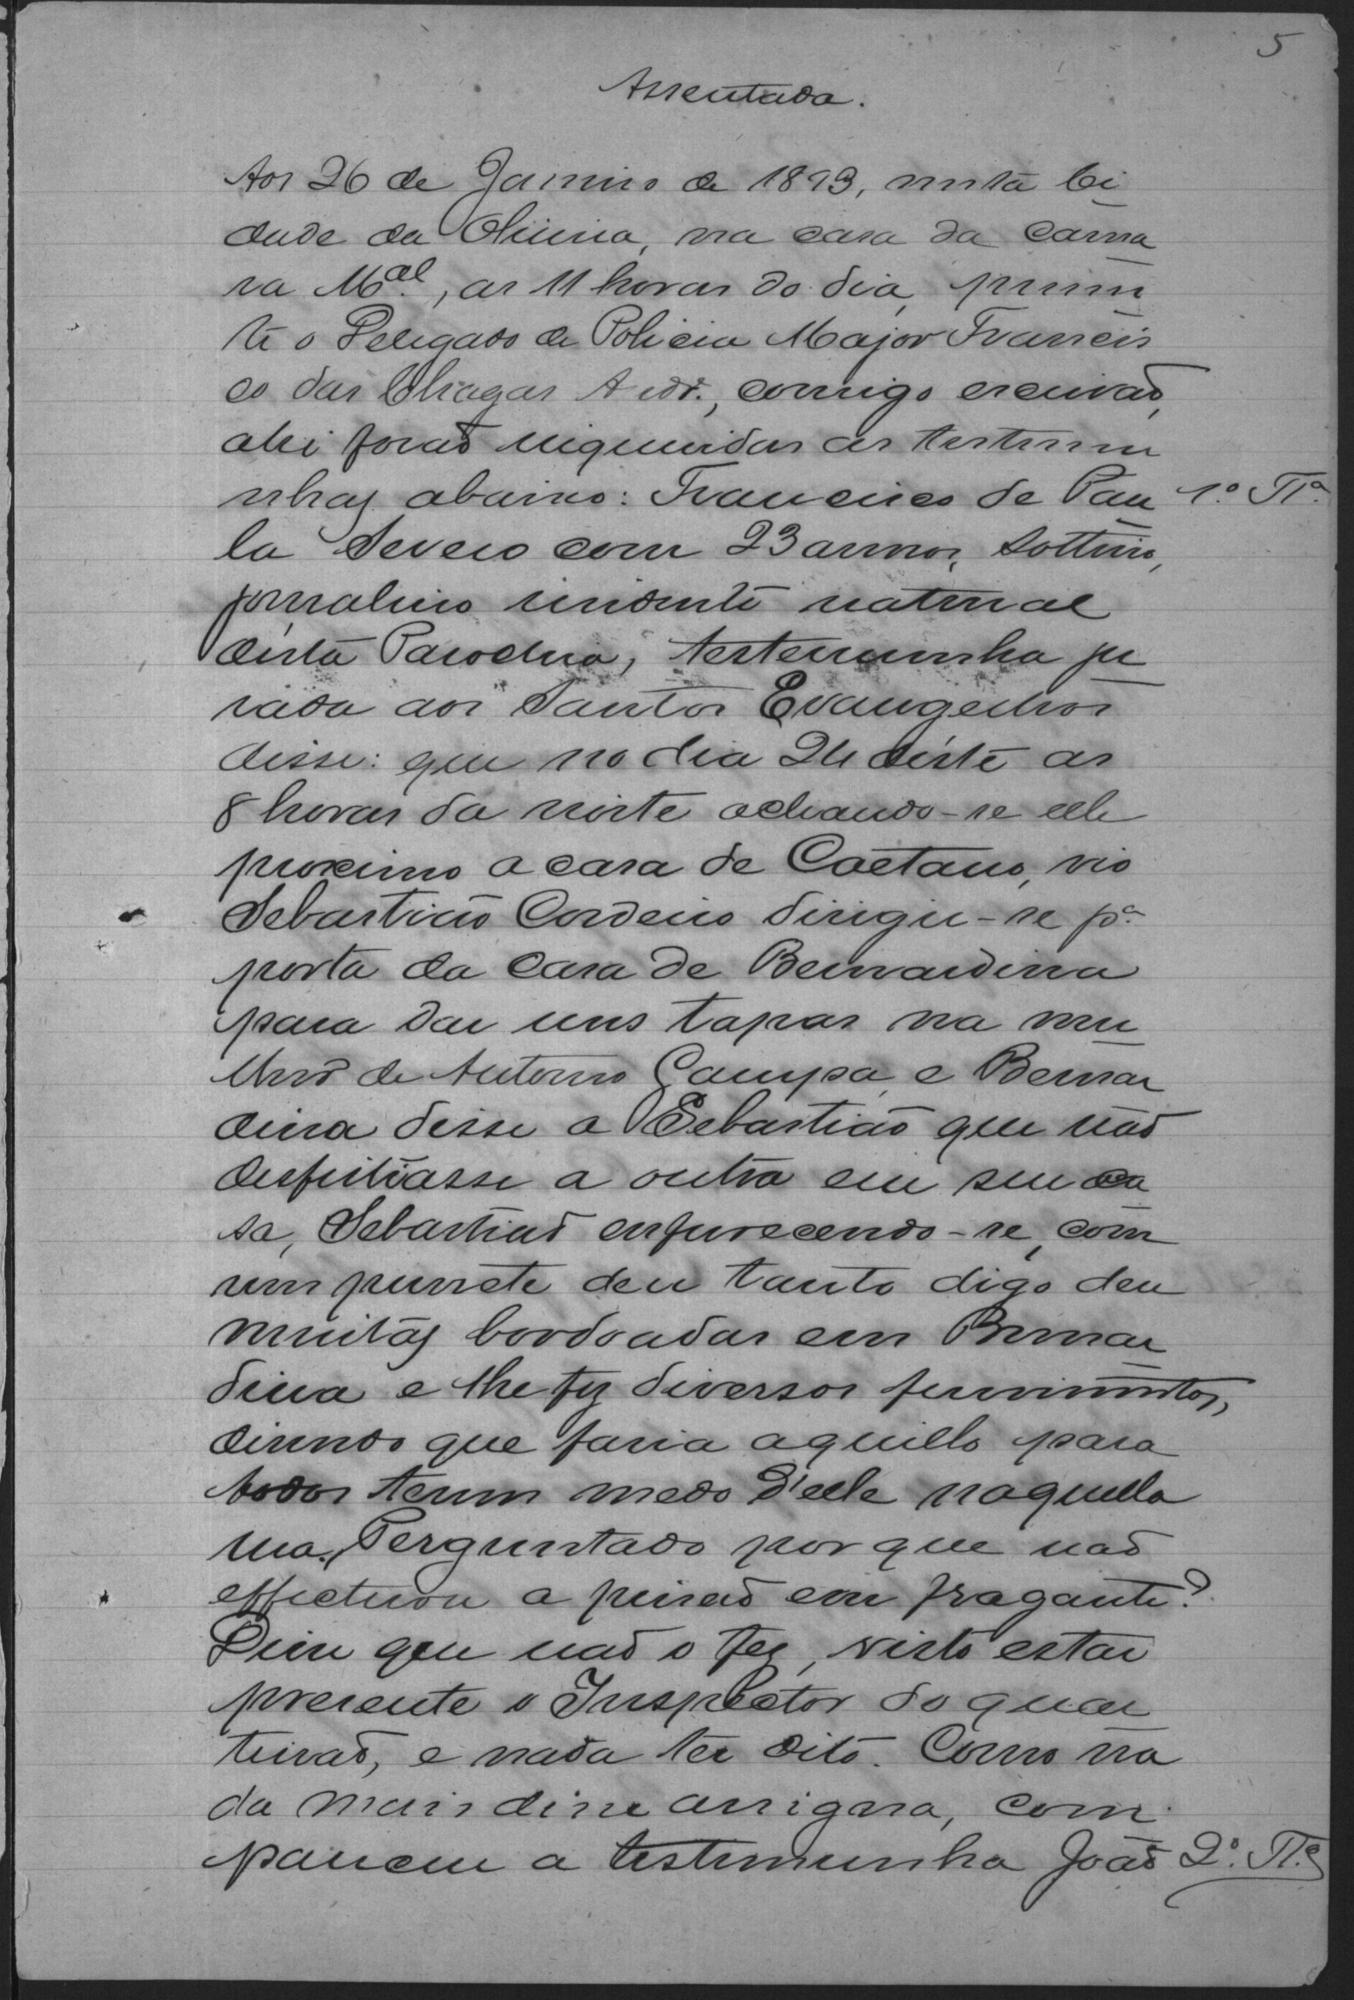 5
Assentada.
Aos 26 de Janeiro de 1893, nesta Ci
dade da Oliveira, na casa da Cama
ra M.al, as 11 horas do dia, presen
te o Delegado de Policia Major Francis
co das Chagas Andr.e, comigo escrivaõ,
ahi foraõ inqueridas as testemu
nhas abaixo: Francisco de Pau 1.a T.a
la Severo com 23 annos, solteiro,
jornaleiro residente natural
desta Parochia, testemunha ju
rada aos Santos Evangelhos
disse: que no dia 24 deste as
8 horas da noite achando-se elle
proximo a casa de Caetano, vio
Sebastiaõ Cordeiro dirigir-se p.a
porta da casa de Bernardina
para dar uns tapas na mu
lher de Antonio Campa, e Bernar
dina disse a Sebastiaõ que naõ
desfeitiasse a outra em sua ca
sa, Sebastiaõ enfurecendo-se, com
um purrete deu tanto digo deu
muitas bordoadas em Bernar
dina e lhe fez diversos ferimentos,
disendo que faria aquillo para
todos terem medo d'elle naquella
rua. Perguntado por que naõ
effectuou a prisaõ em fragante?
Disse que naõ o fez, visto estar
presente o Inspector do quar
teiraõ, e nada ter dito. Como na
da mais disse assigna, com
pareceu a testemunha Joaõ 2.a T.a